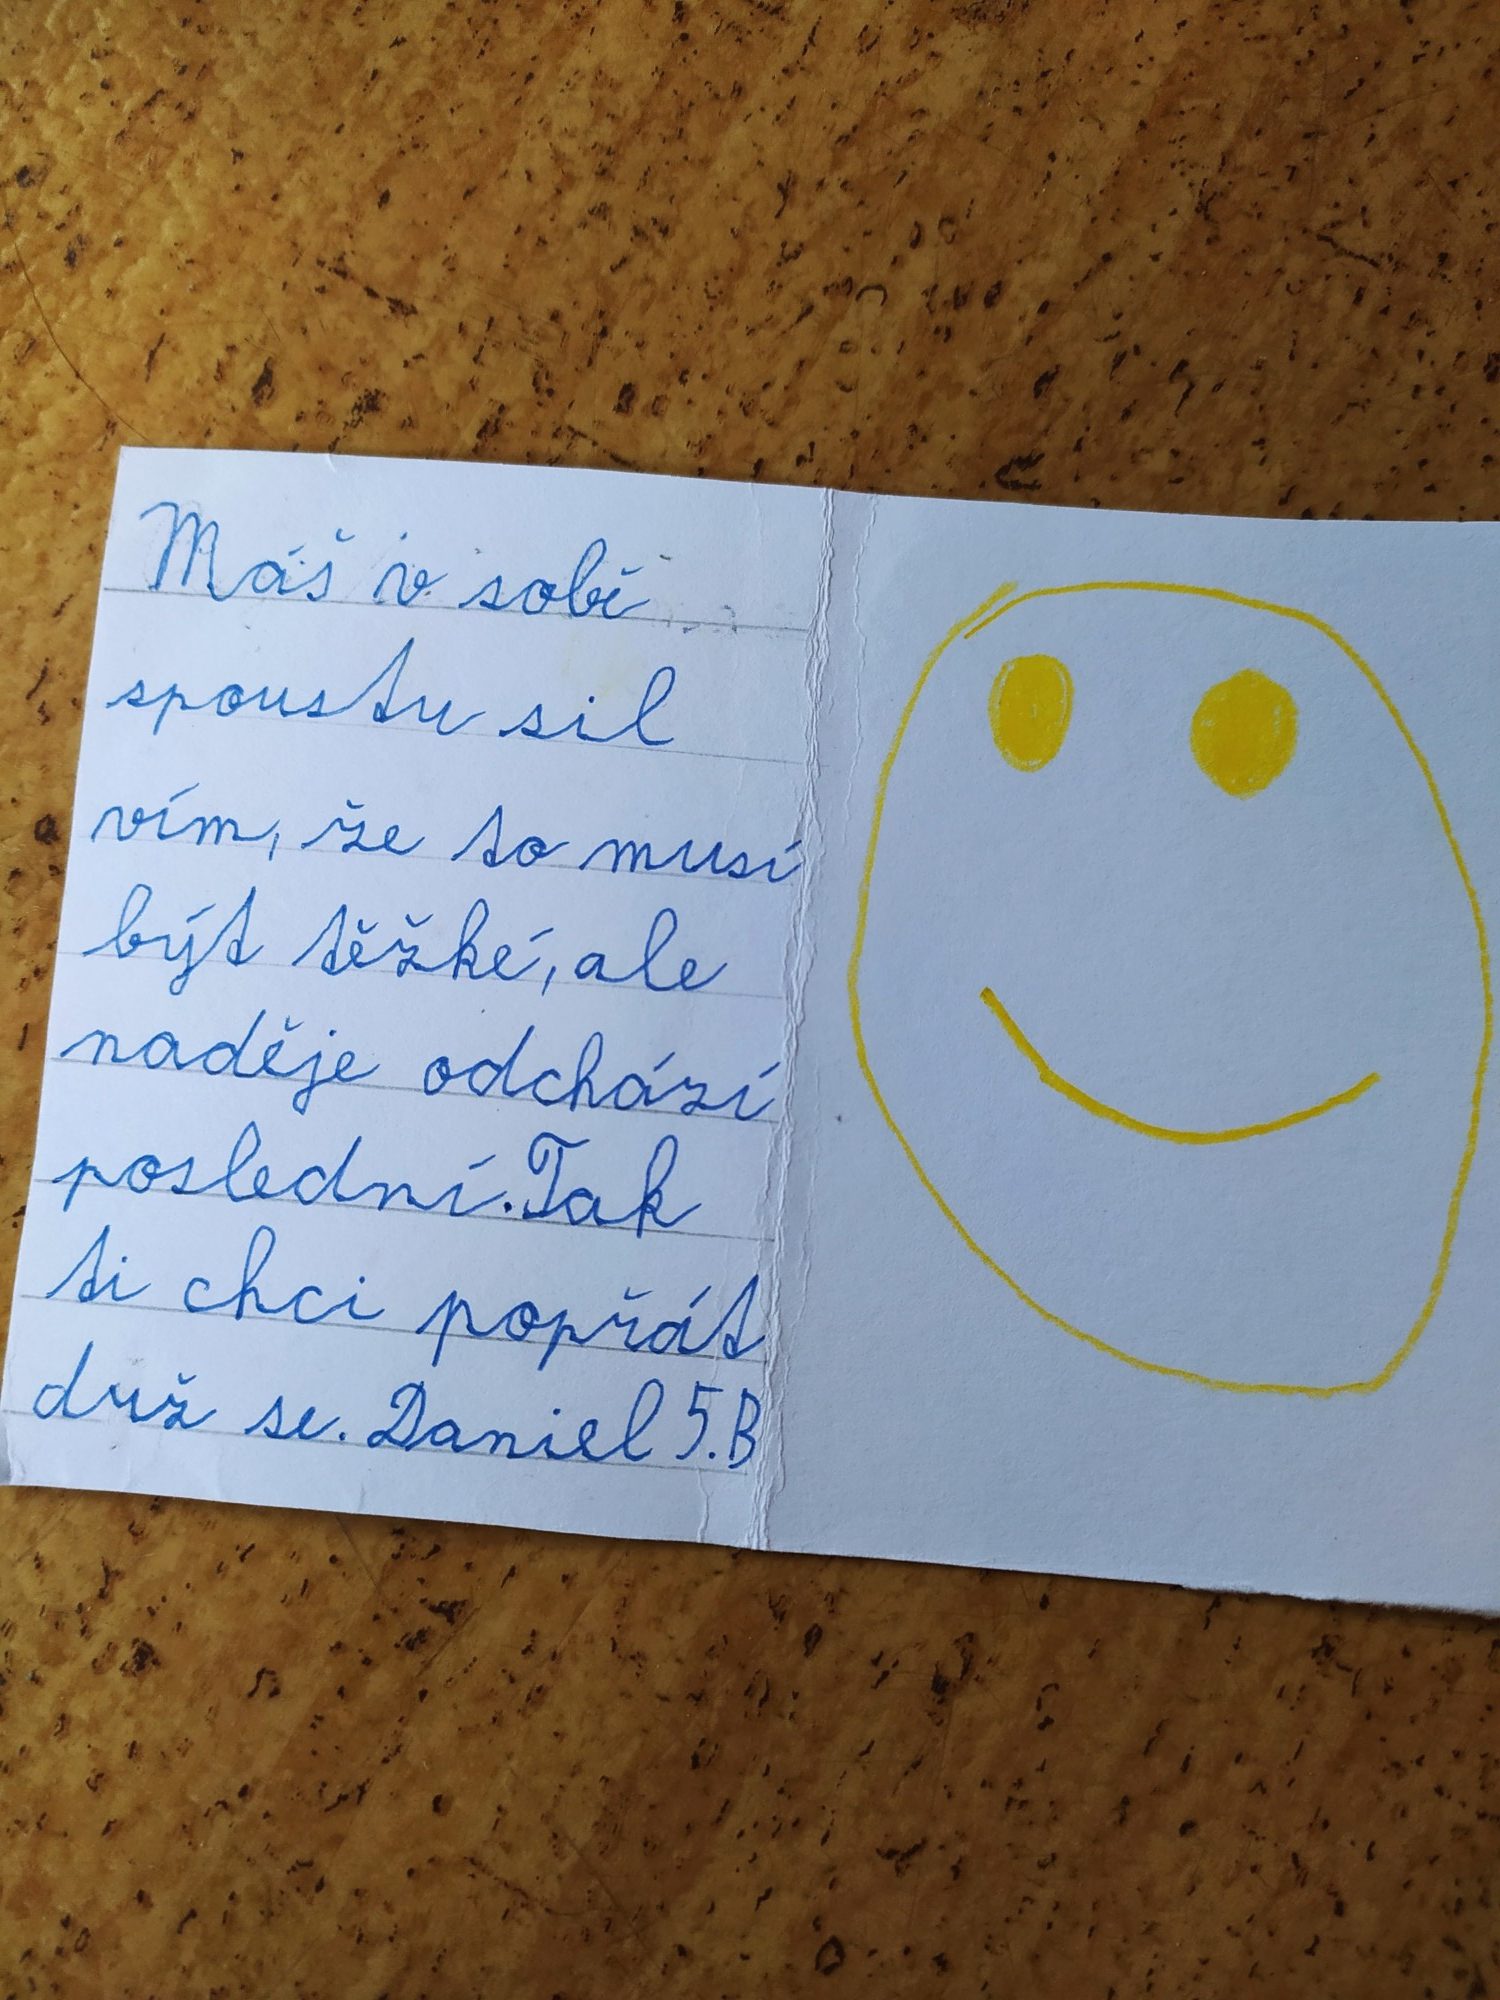 Máš v sobě
spoustu sil
vím, že to musí
být těžké, ale
naděje odchází
poslední. Tak
ti chci popřát
duž se. Daniel 5.B